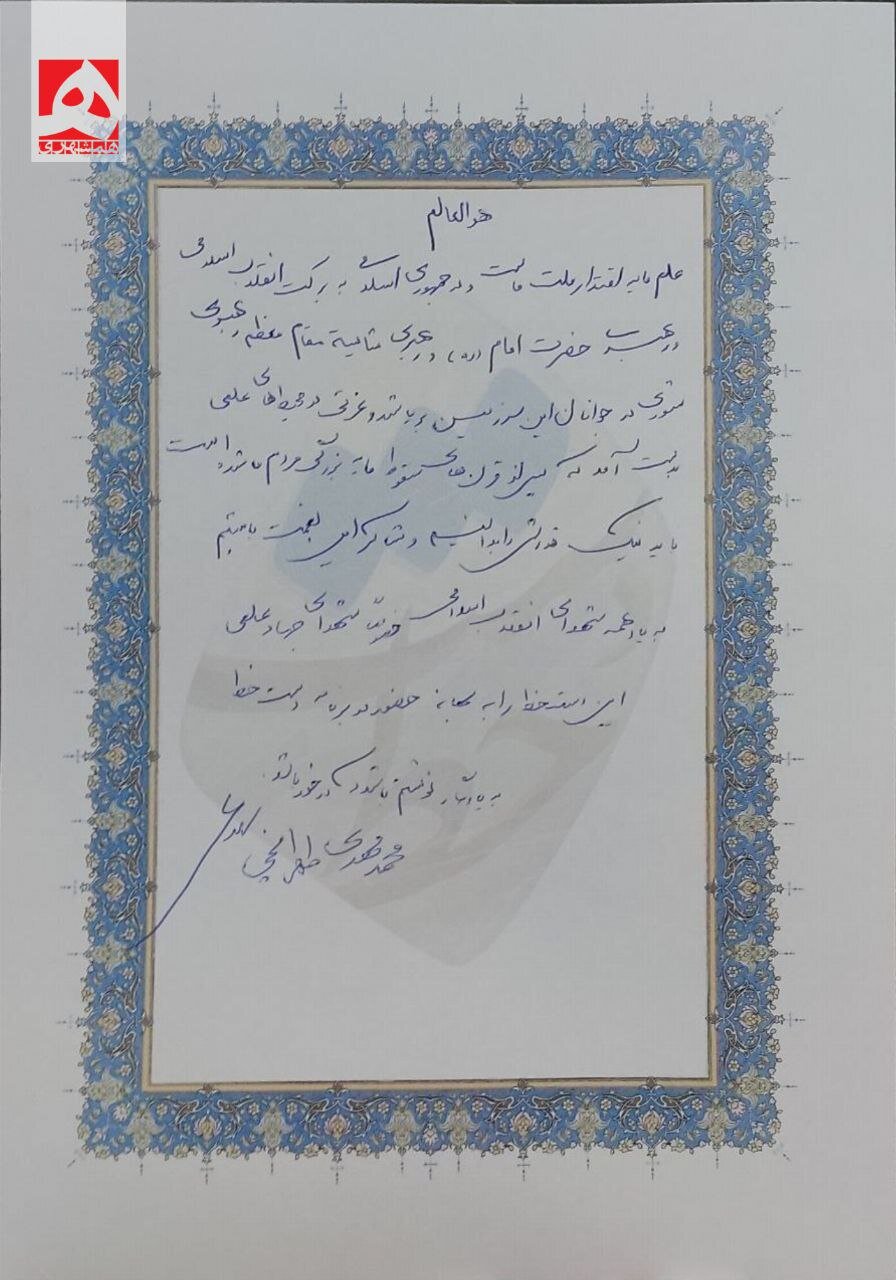 همشهری
هوالعالم
علم مایه اقتدار ملت ماست و در جمهوری اسلامی به برکت انقلاب اسلامی
و رهبری حضرت امام (ره) و رهبری مقام معظم رهبری
شوری در جوانان این سرزمین برپا شد و عزتی در محیطهای علمی
بدست آمد که پس از قرن های سقوط مایه بزرگی مردم ما شده است
باید نیک قدرش را بدانیم و شاکر این نعمت باشیم
به یاد همه شهدای انقلاب اسلامی خاصه شهدای جهاد علمی
این دست خط را به بهانه حضور در برنامه دست خط
به یادگار نوشتم باشد که در خور باشد.
محمد مهدی طهرانچی